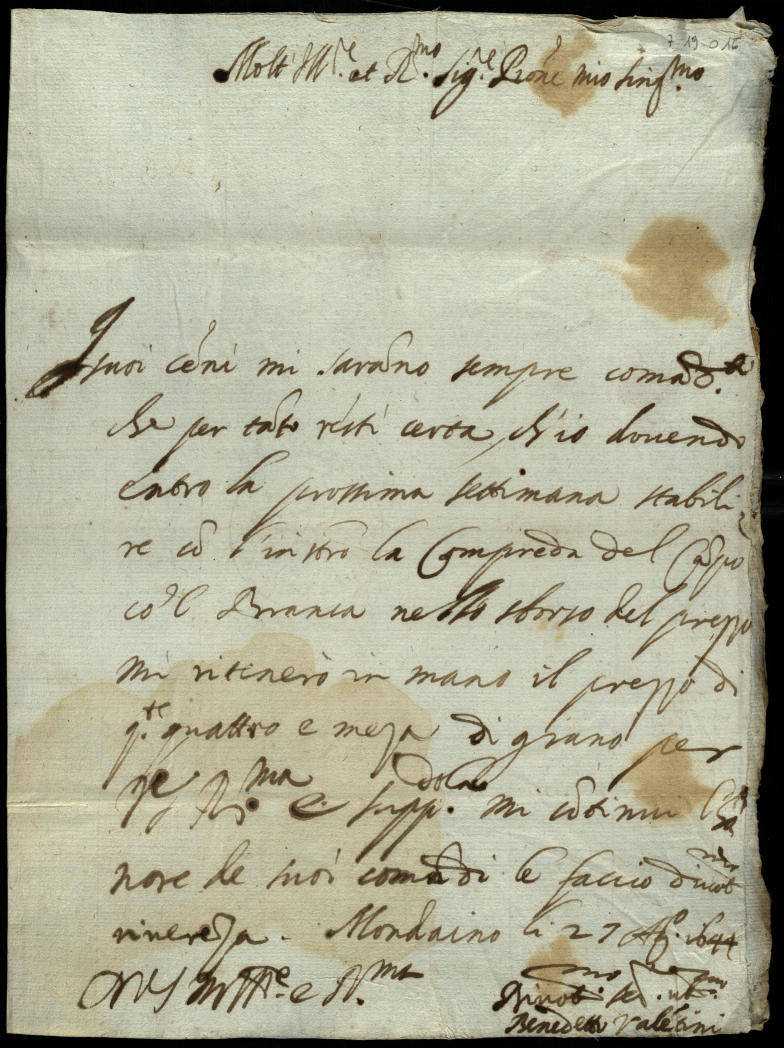 7-19-015
Molt Ill.re et R.mo Sig.re Prone mio sing.mo
I suoi céni mi sarano sempre comad.ti
che per tato resti certa, ch'io douendo
entro la prossima settimana stabili
re cō l'instro la Compreda del Cāpo
co'l Branca nello sborso del prezzo
mi ritenerò in mano il prezzo di
q.te quattro e meza di grano per
R.ma e supp.dola mi cōtinui
nore de suoi comādi le faccio diuot.ma
riuereza. Mondaino li 27 Ag.o 1644
D V S M Ill.re e R.ma
Diuot.mo se.r ob.mo
Benedetto Valētini